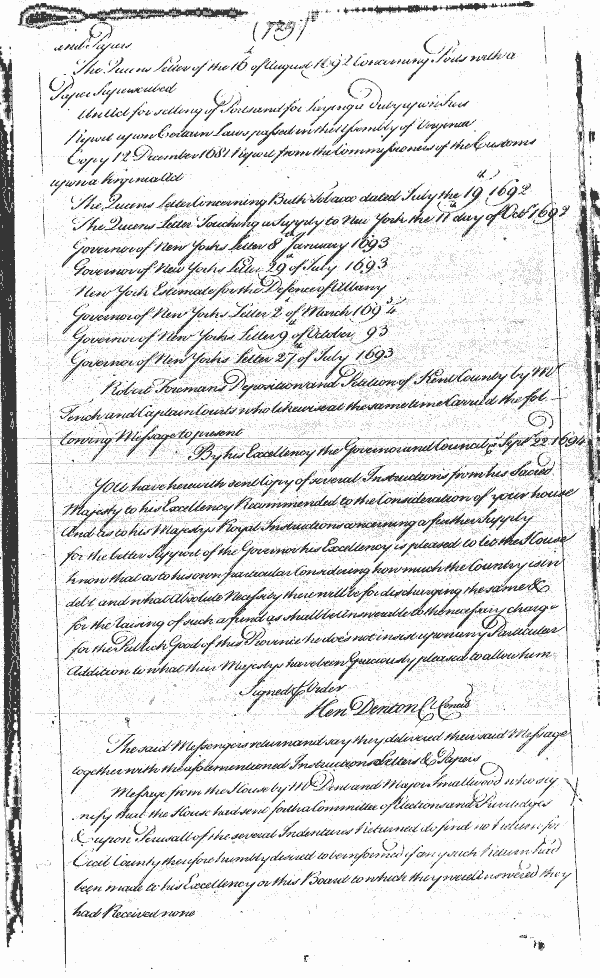 (729)
and Papers
The Queens Letter of the 16th of August 1692 Concerning Ports with a
Paper Superscribed
An Act for setling of Ports and for laying a Duty upon Furs
Report upon Certain Laws passed in the Assembly of Virginia
Copy 12 December 1681 Report from the Commissioners of the Customs
upon a Virginia Act
The Queens Letter Concerning Bulk Tobacco dated July the 19th 1692
The Queens Letter Touching a Supply to New York the 11th day of Octr 1692
Governor of New Yorks Letter 8th January 1693
Governor of New Yorks Letter 29th of July 1693
New York Estimate for the Defence of Albany
Governor of New Yorks Letter 2d of March 1693/4
Governor of New Yorks Letter 9th of October 93
Governor of New Yorks Letter 27th of July 1693
Robert Foremans Deposition and Petition of Kent County by Mr
Tench and Captain Courts who likewise at the same time Carried the fol-
lowing Message to present
By his Excellency the Governor and Council Septr 22 1694
You have herewith sent Copy of several Instructions from his Sacred
Majesty to his Excellency Recommended to the Consideration of your house
And as to his Majestys Royal Instructions concerning a further Supply
for the better Support of the Governor his Excellency is pleased to let the House
know that as to his own particular Considering how much the Country is in
debt and what Absolute Necessity there will be for discharging the same &
for the raising of such a fund as shall be answerable to the necessary charge
for the Publick Good of this Province he does not insist upon any Particular
Addition to what their Majestys have been Graciously pleased to allow him
Signed p Order
Hen: Denton Cl Concil
The said Messengers return and say they delivered their said Message
together with the aforementioned Instructions Letters & Papers
Message from the House by Mr Dent and Major Smallwood who sig
nify that the House had sent forth a Committee of Elections and Priviledges
& upon Perusall of the several Indentures Returned do find no return for
Cecil County therefore humbly desired to be informed if any such Return had
been made to his Excellency or this Board to which they were Answered they
had Received none